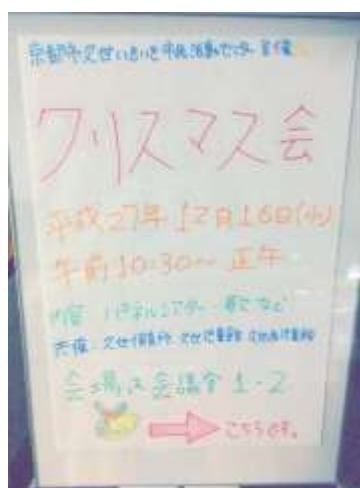 京都市久世いきいき市民活動センター主催
クリスマス会
平成27年12月16日(水)
午前10:30〜正午
内容 パネルシアター・歌など
共催
会場は会議室1・2
こちらです。